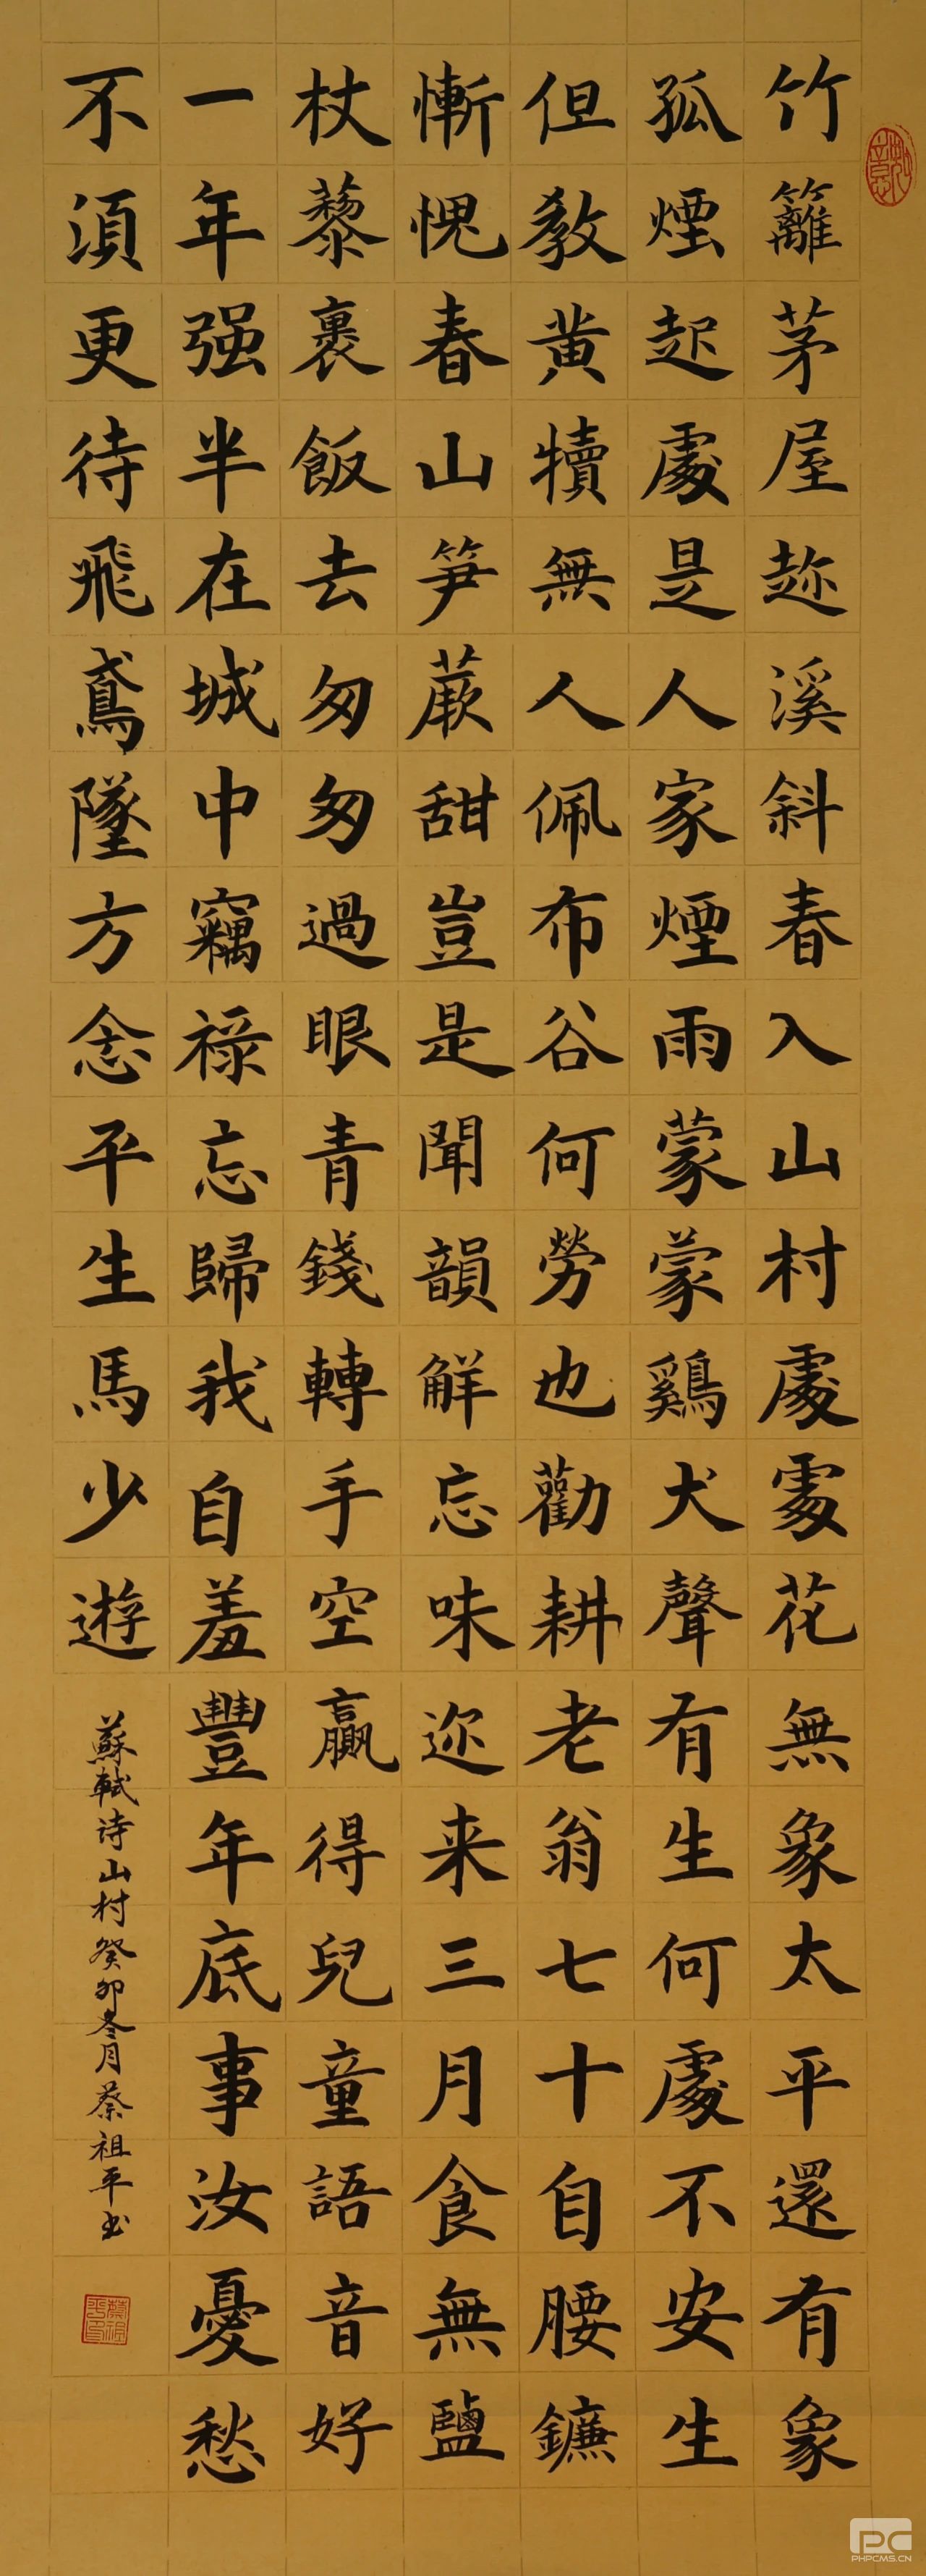 竹籬茅屋趂溪斜春入山村處處花無象太平還有象
孤煙起處是人家煙雨蒙蒙鷄犬聲有生何處不安生
但教黄犢無人佩布谷何勞也勸耕老翁七十自腰鐮
慚愧春山笋蕨甜豈是聞韻解忘味迩来三月食無鹽
杖藜裹飯去匆匆過眼青錢轉手空贏得兒童語音好
一年强半在城中竊祿忘歸我自羞豐年底事汝憂愁
不須更待飛鳶墜方念平生馬少遊
蘇軾诗山村癸卯冬月蔡祖平书
蔡祖平印
PC
PHPCMS.CN